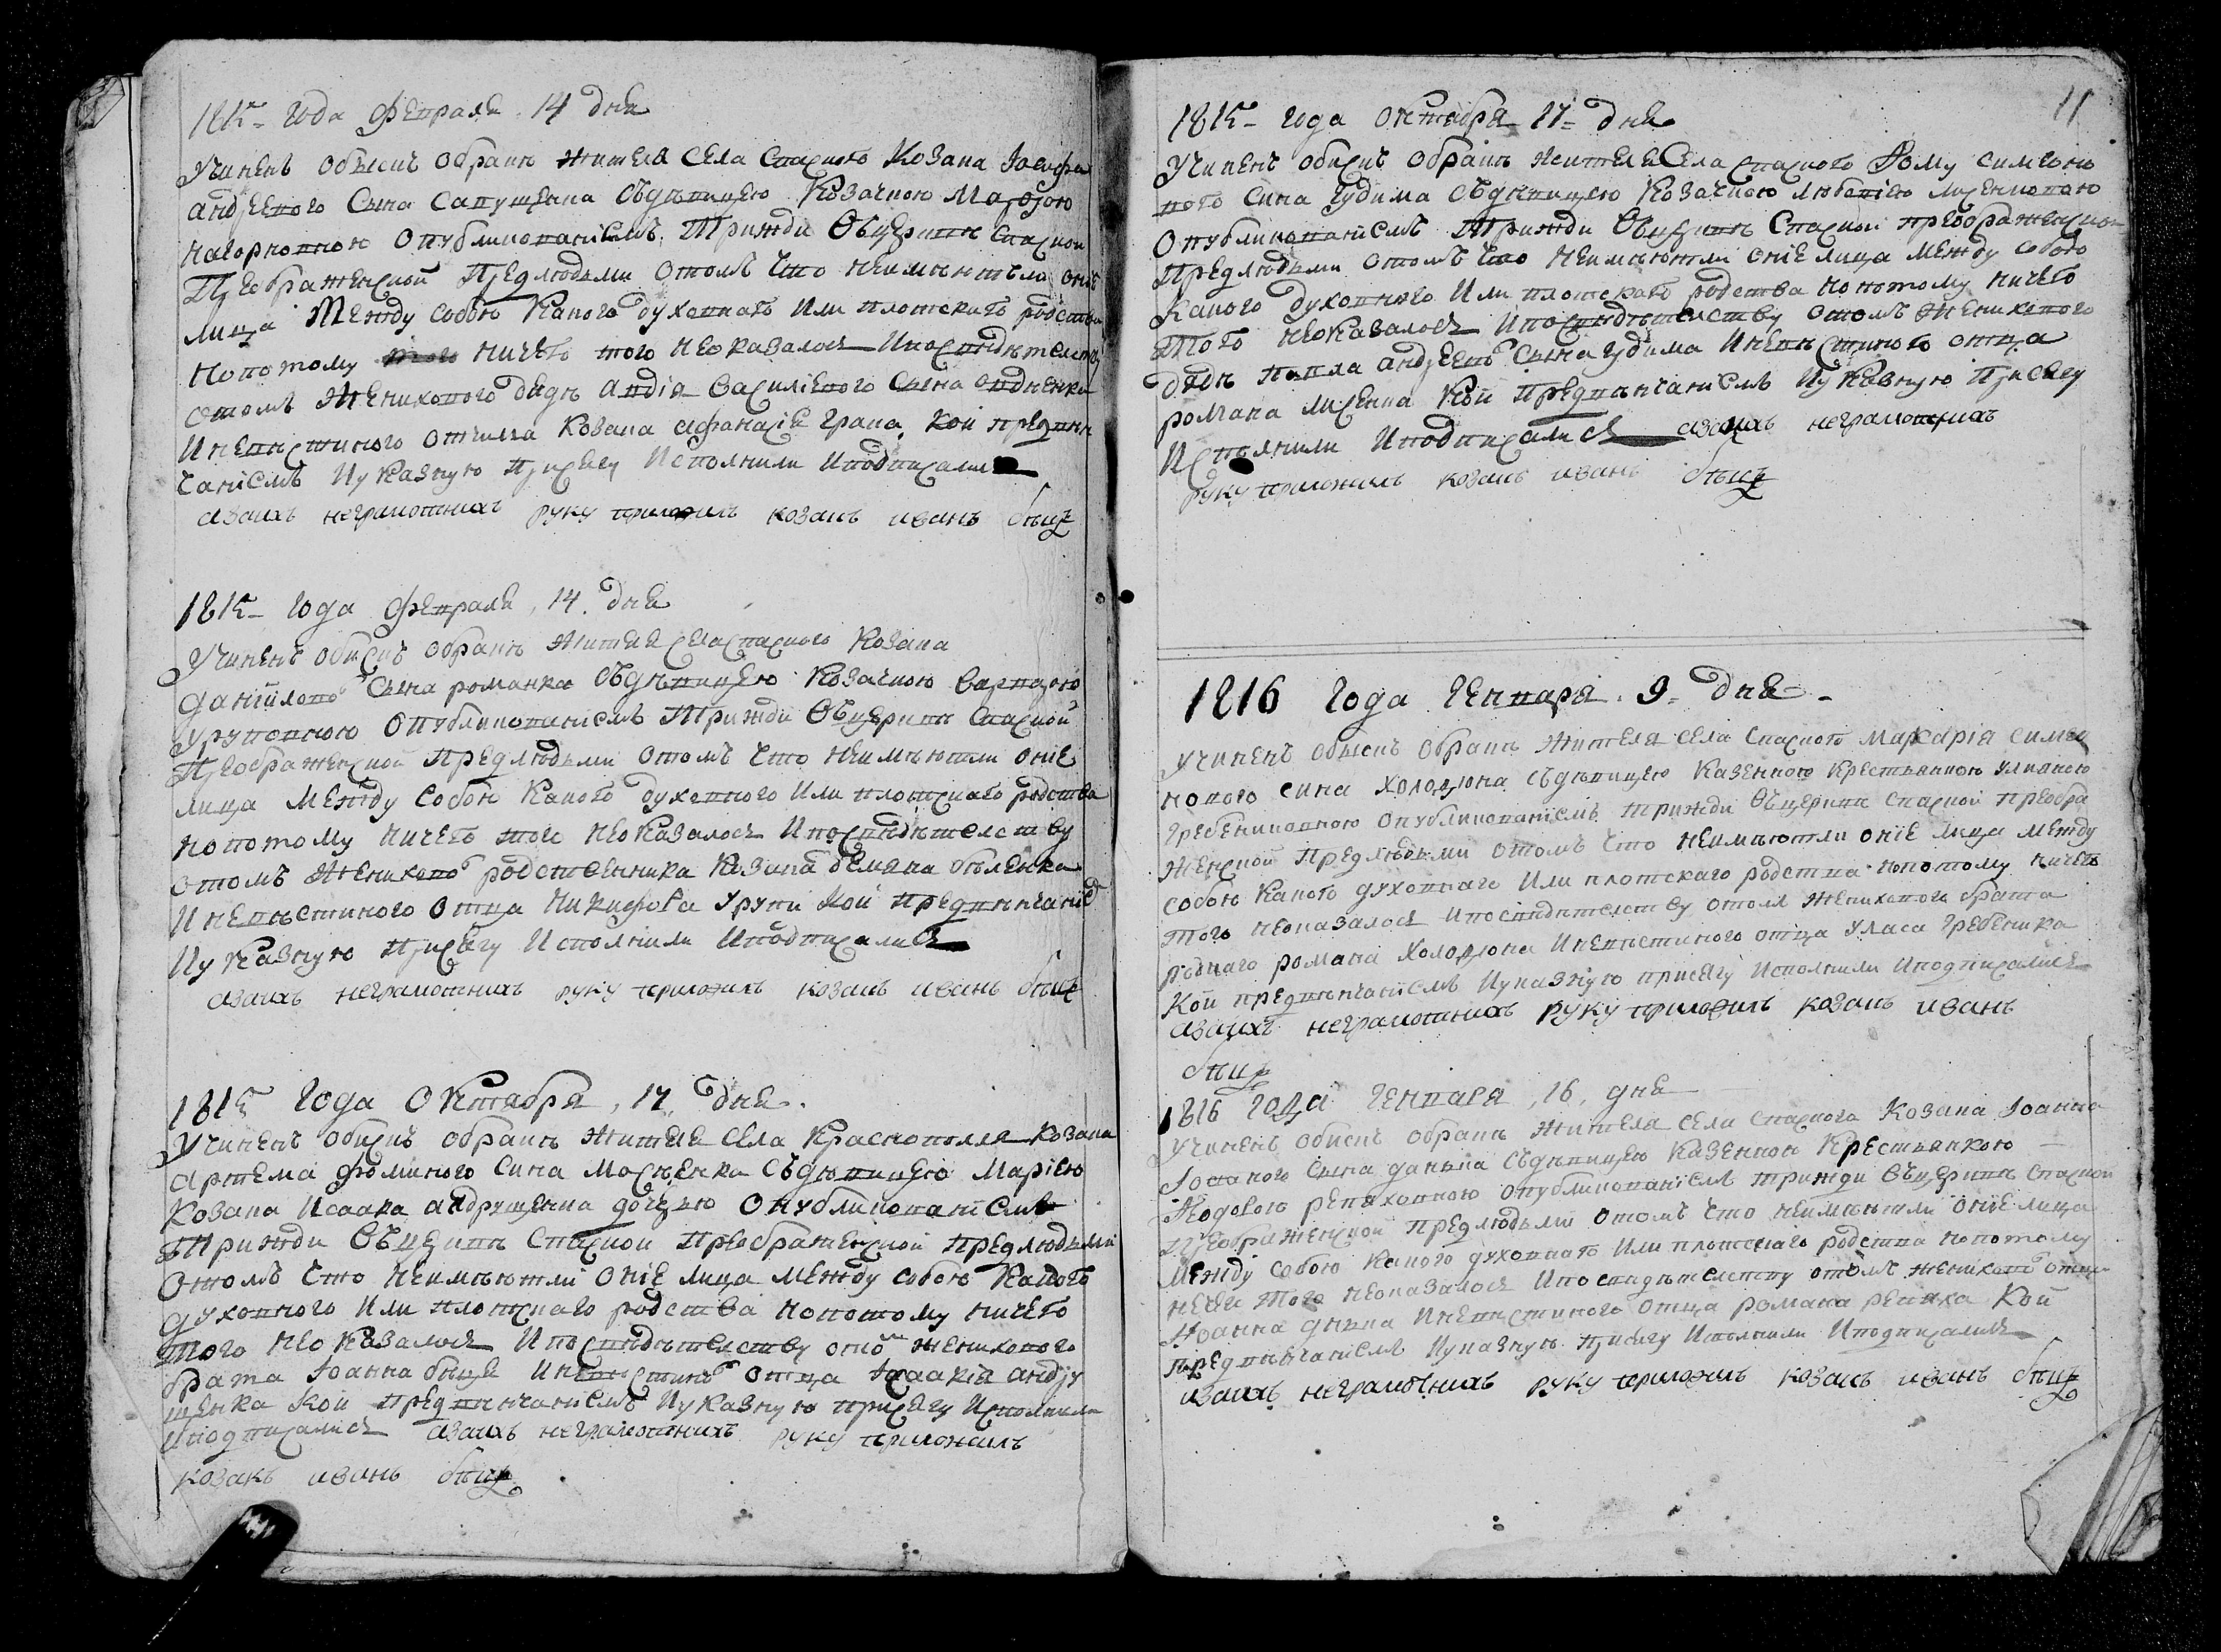 1815 года Февраля 14 дня
Учиненъ обыскъ обракѣ жителя села Спаского Козака Іосифа
андреевого Сына Сапущенка Съдѣвицею Козачкою
опубликованіемъ Трижди Въцеркви Спаской
Преображенской Предлюдьми отомъ что неимѣютъли оніе
лица Между собою Какого духовнаго Или плотскаго родства
Нопотому ничего того неоказалося Ипосвидѣтелству
отомъ Женихового дядѣ Василіевого Сына
Иневѣстиного отчима Козака афанасія Грака Кой предвѣн
чаніемъ Иуказную присягу Исполнили Иподписалися
азаихъ неграмотнихъ руку приложилъ козакъ иванъ быцъ
1815 года Февраля 14 дня
Учиненъ обискъ обракѣ Жителя села Спаского Козака
даніилового Сына романка Съдѣвицею Козачкою варварою
опубликованіемъ Трижди Въцеркви Спаской
Преображенской Предлюдьми отомъ что неимѣютли оніе
лица Между собою Какого духовного Или плотскаго родства
нопотому ничего того неоказалося Ипосвидѣтелству
отомъ Жениховог родственника Козака демяна
Иневѣстиного отца Никифора Кой Предвѣнчаніем
Иуказную Присягу Исполнили Иподписалися
азаихъ неграмотнихъ руку приложилъ козакъ иванъ быцъ
1815 года Октября 17 дня
Учиненъ обискъ обракѣ жителя села Краснополля Козака
артема фоминого Сина Мосѣенка Съдѣвицею Маріею
Козака Исаака андрущенка дочерью Опубликованіемъ
Трижди Въцеркви Спаской Преображенской Предлюдьми
отомъ что неимѣютли оніе лица между собою Какого
духовного Или плотскаго родства нопотому ничего
того неоказалося Ипосвидѣтелству отом жениховог
брата Іоанна быця Иневѣстиног отца Ісаакія андру
щенка Кой Предвѣнчаніемъ Иуказную присягу Исполнили
Иподписалися азаихъ неграмотнихъ руку приложилъ
козакъ иванъ быцъ
11
1815 года октября 17 дня
Учиненъ обискъ обракѣ жителя Села Спаского Фому симеоно
вого сина гудима Съдѣвицею Козачкою любовію лисенковою
опубликованіемъ Трижди Въцерквѣ Спаской преображенской
Предлюдьми отомъ что неимѣютли оніе лица между собою
Какого духовного Или плотскаго родства нопотому ничего
того неоказалося Ипосвидѣтелству отомъ Жениховог
дядѣ павла андреевог Сына гудима Иневѣстиного отца
романа лисенка Кой Предвѣнчаніемъ Иуказную Присягу
Исполнили Иподписалися азаихъ неграмотнихъ
руку приложилъ козакъ иванъ быцъ
1816 года Генваря 9 дня
Учиненъ обыскъ обракѣ Жителя села Спаского Макарія симео
нового сина Холодюка Съдѣвицею Казенною Крестьянкою Улияною
гребениковною опубликованіемъ трижди Въцеркви Спаской преобра
женской Предлюдьми отомъ что неимѣютли оніе лица между
собою Какого духовнаго Или плотскаго родства нопотому ничего
того неоказалося Ипосвидѣтелству отомъ Жениховог брата
роднаго романа Холодюка Иневѣстиного отца Уласа Гребеника
Кой предвѣнчаніемъ Иуказную присягу Исполнили Иподписалися
азаихъ неграмотнихъ руку приложилъ козакъ иванъ
быцъ
1816 года Генваря 16 дня
Учиненъ обискъ обракѣ Жителя села Спаского Козака Іоанна
Іоаного Сына Съдѣвицею Казенною Крестьянкою
Ѳодосею репяховною опубликованіемъ трижди Въцерквѣ Спаской
Преображенской предлюдьми отомъ что неимѣютли оніе лица
между собою Какого духовнаго Или плотскаго родства нопотому
ничего того неоказалося Ипосвидѣтелству отомъ жениховог отца
Иоанна Иневѣстиного отца романа репяха Кой
предвѣнчаніемъ Иуказную присягу Исполнили Иподписалися
азаихъ неграмотнихъ руку приложилъ козакъ иванъ быцъ